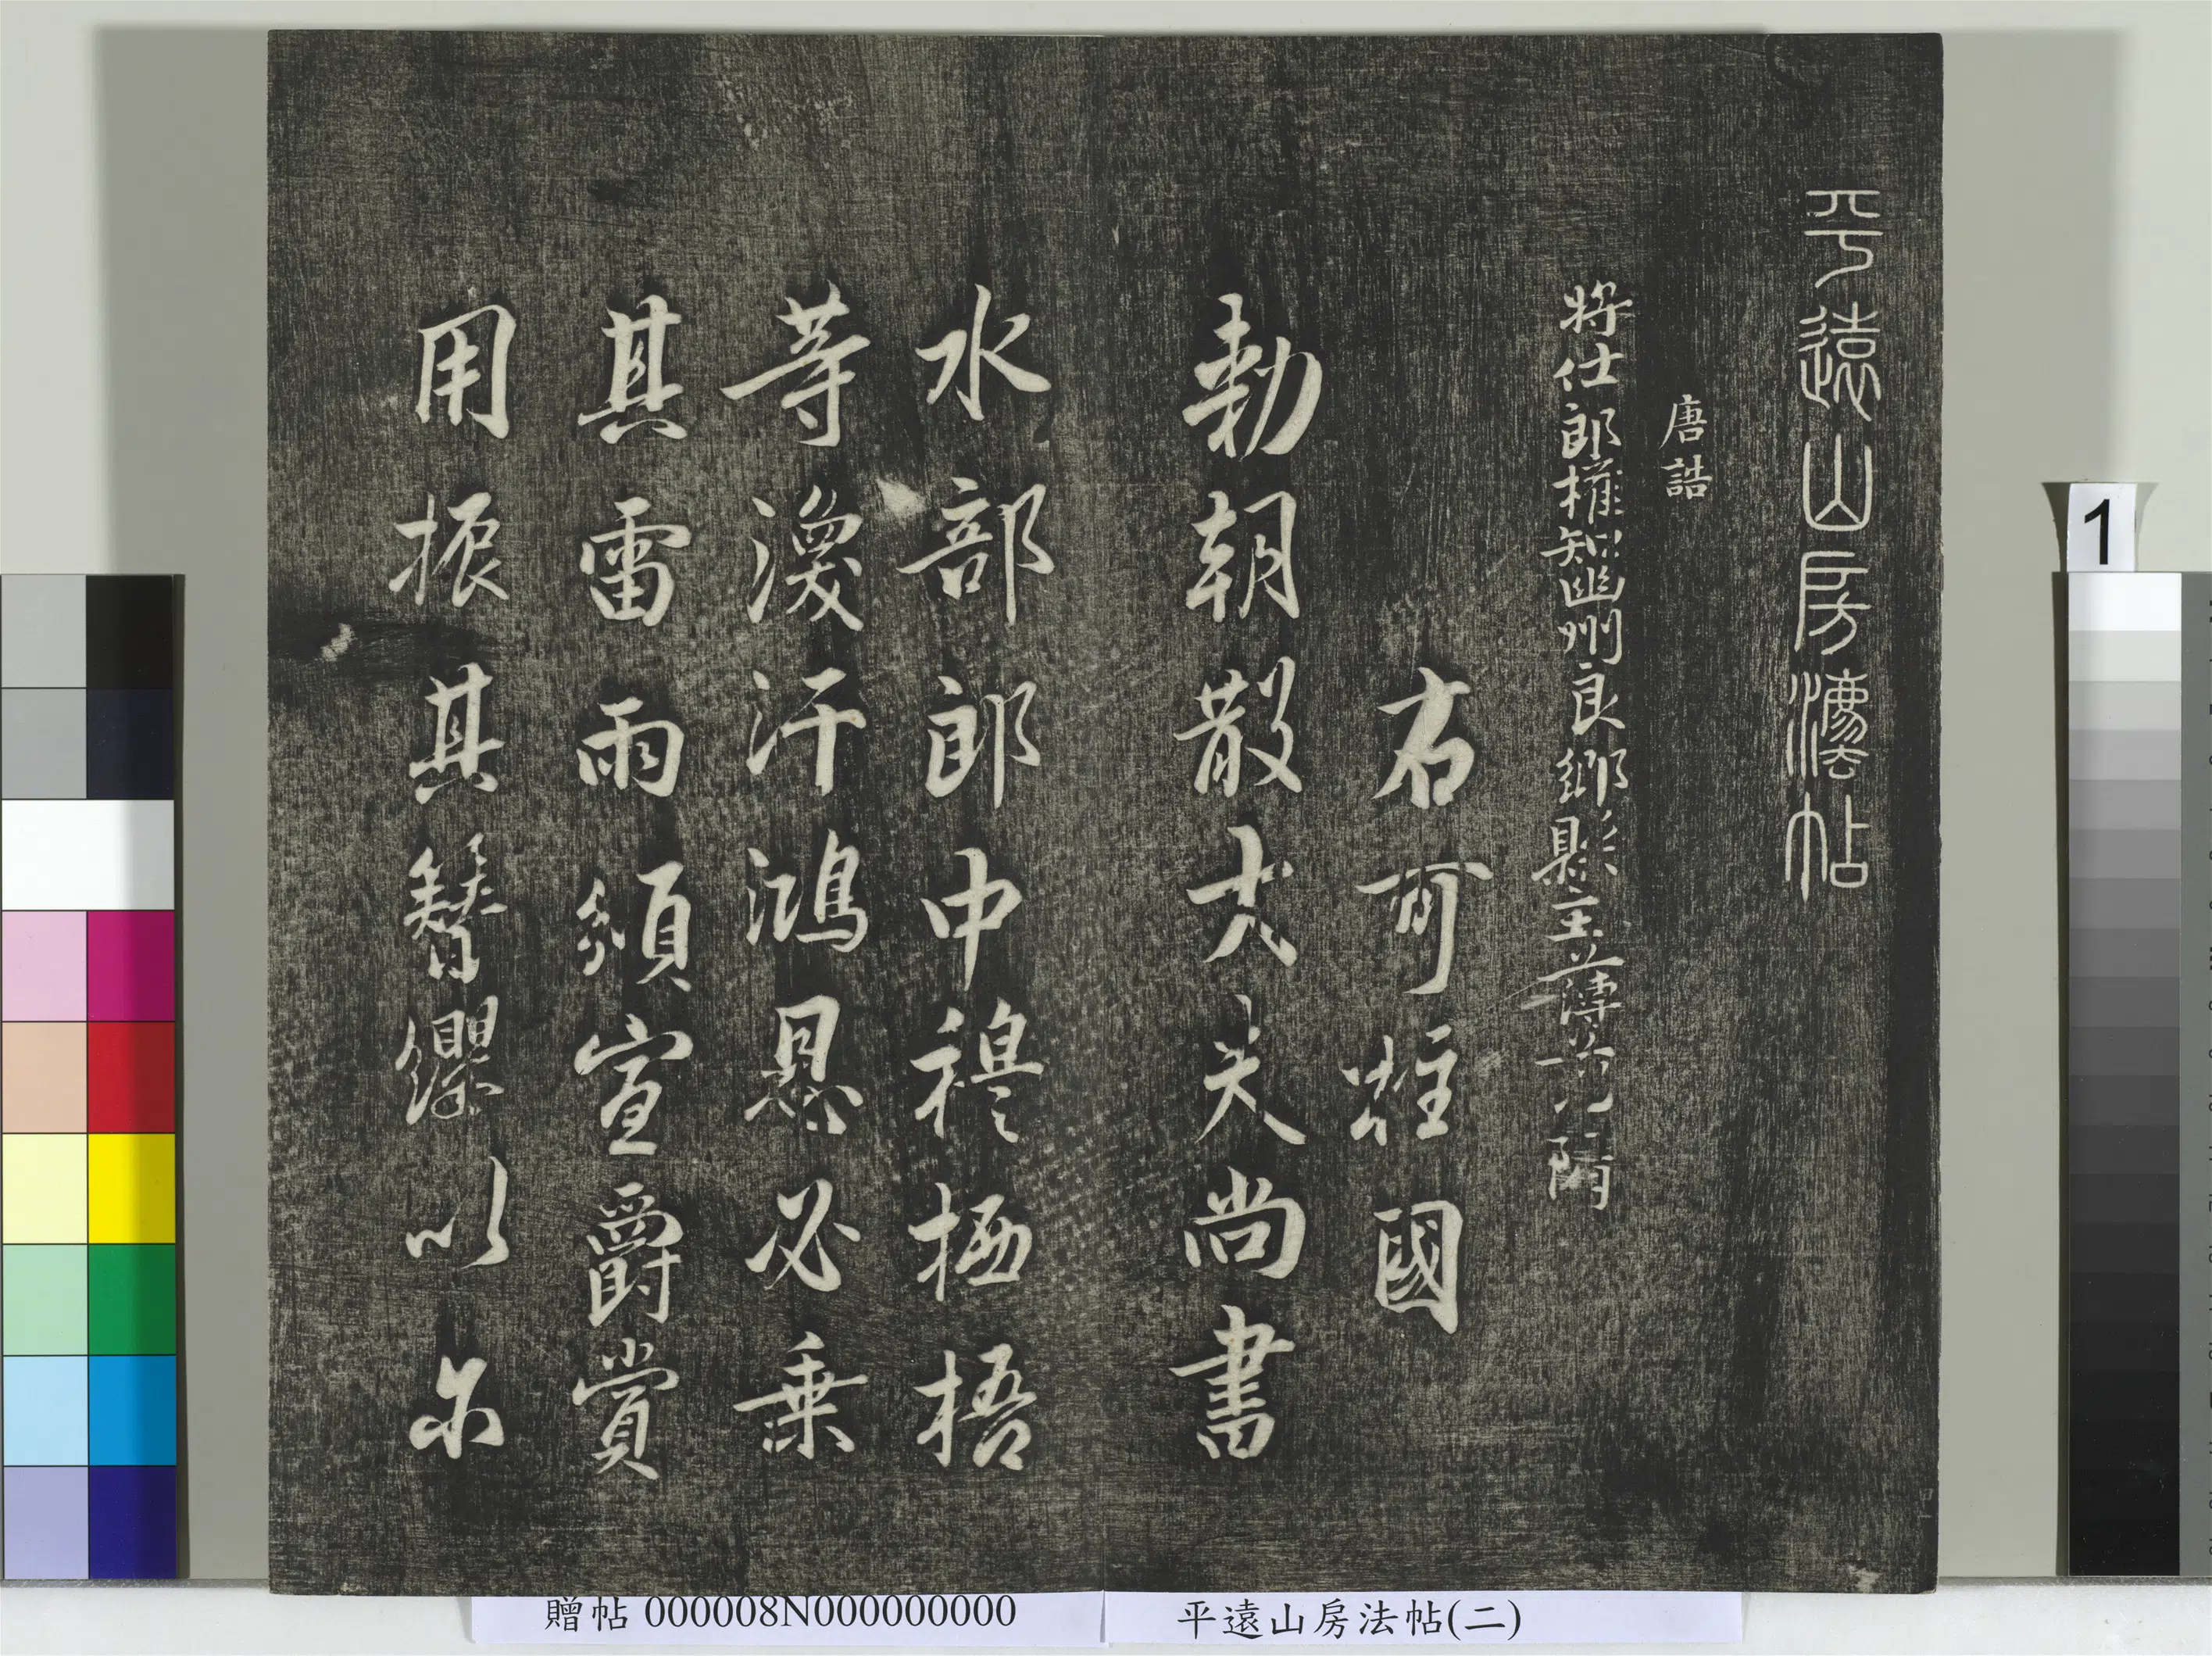 平遠山房法帖
唐誥
將仕郎權知幽州良鄉縣主薄
右可柱國
勅朝散大夫尚書
水部郎中穆栖梧
等渙汗鴻恩必乗
其雷雨須宣爵賞
用振其簪纓以尔
1
贈帖 000008N000000000
平遠山房法帖(二)